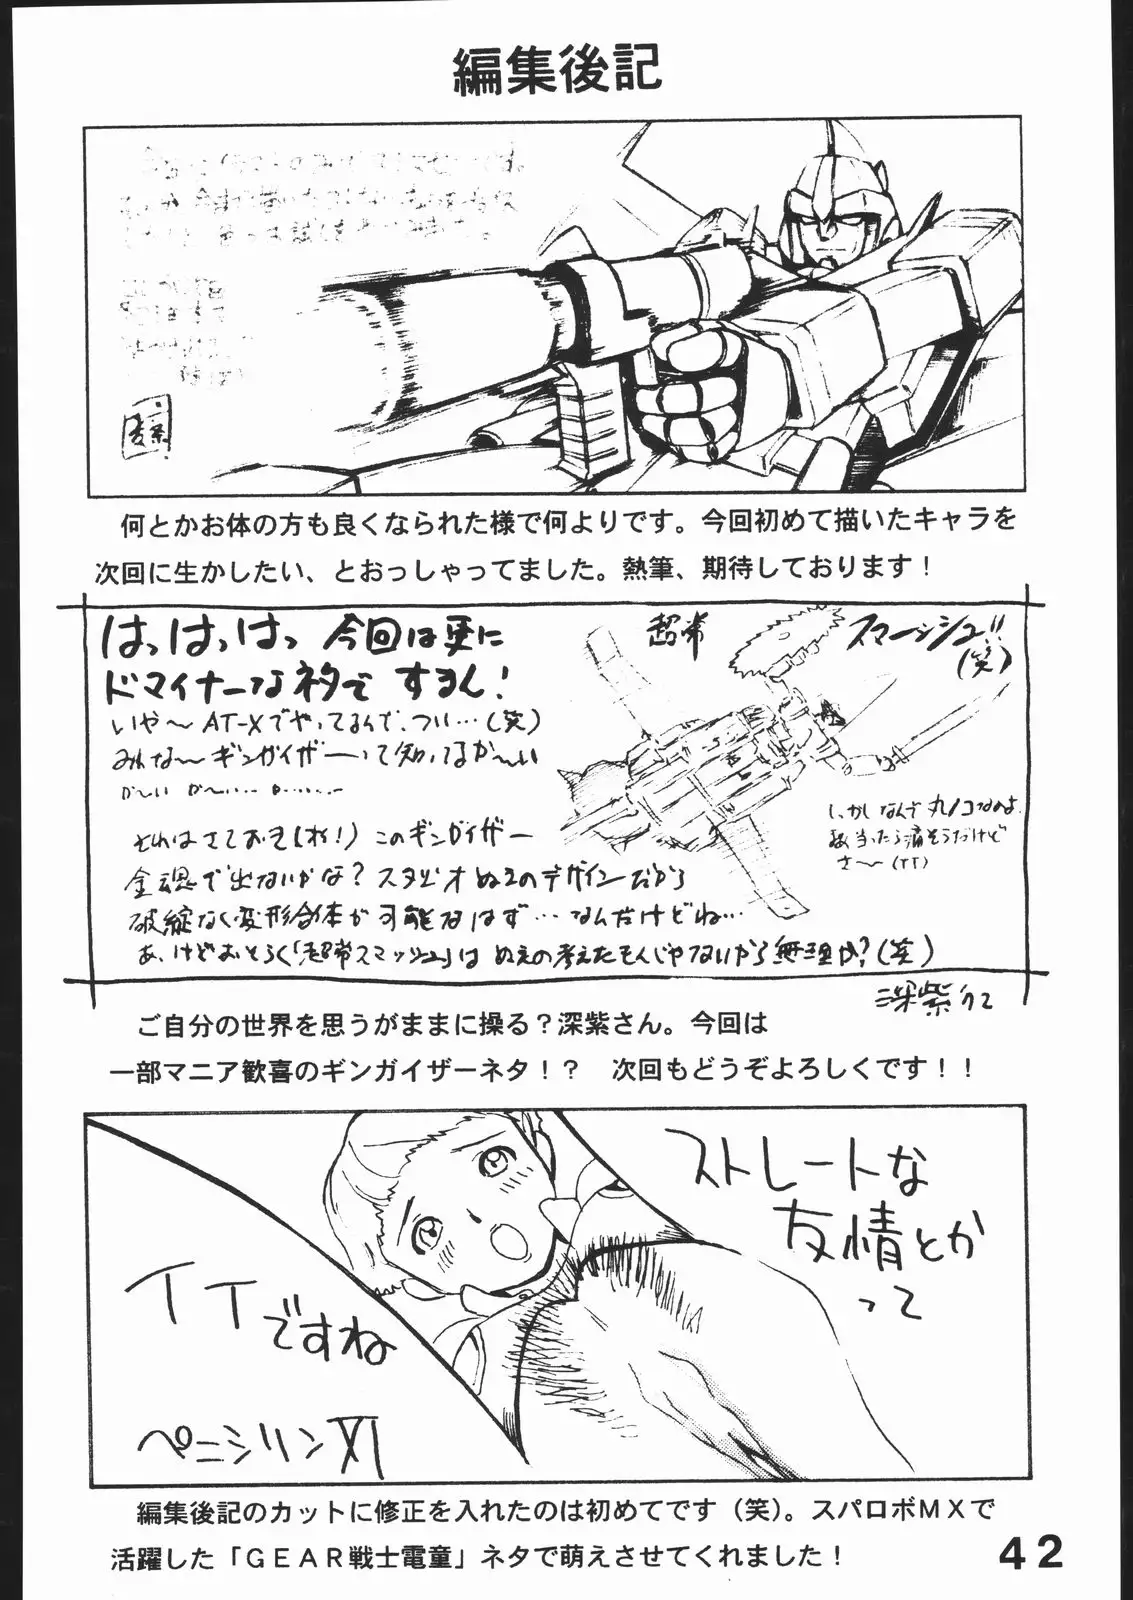 編集後記
何とかお体の方も良くなられた様で何よりです。今回初めて描いたキャラを
次回に生かしたい、とおっしゃってました。熱筆、期待しております！
はっはっはっ 今回は更に
ドマイナーなネタで すまん！
いや〜 AT-Xでやってるんで、つい…(笑)
みんな〜ギンガイザーって知ってるか〜い
か〜い か〜い…
超常
スマーッシュ!!
(笑)
しかしなんで丸ノコなのよ
当たら痛そうだけど
さ〜(TT)
それはさておき(ね!) このギンガイザー
金魂で出ないかな? スタジオぬえのデザインだから
破綻なく変形合体が可能なはず…なんだけどね…
あ、けどおそらく「超常スマッシュ」は ぬえの考えたもんじゃないから無理か?(笑)
深紫
ご自分の世界を思うがままに操る？深紫さん。今回は
一部マニア歓喜のギンガイザーネタ！？　次回もどうぞよろしくです！！
ストレートな
友情とか
って
イイ
ですね
ペニシリンXI
編集後記のカットに修正を入れたのは初めてです（笑）。スパロボＭＸで
活躍した「ＧＥＡＲ戦士電童」ネタで萌えさせてくれました！
42